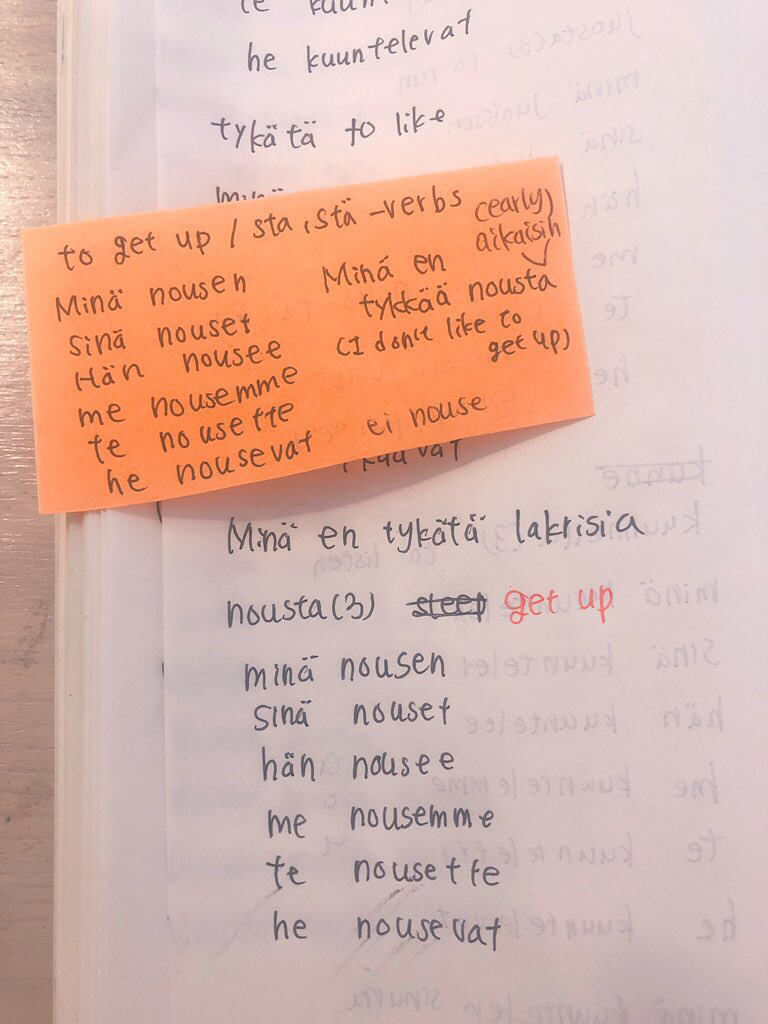 he kuuntelevat
tykätä to like
to get up / sta, stä -verbs
Minä nousen
Sinä nouset
Hän nousee
me nousemme
te nousette
he nousevat
(early)
aikaisin
Minä en
tykkää nousta
(I don't like to
get up)
ei nouse
Minä en tykätä lakrisia
nousta (3) sleep get up
minä nousen
sinä nouset
hän nousee
me nousemme
te nousette
he nousevat